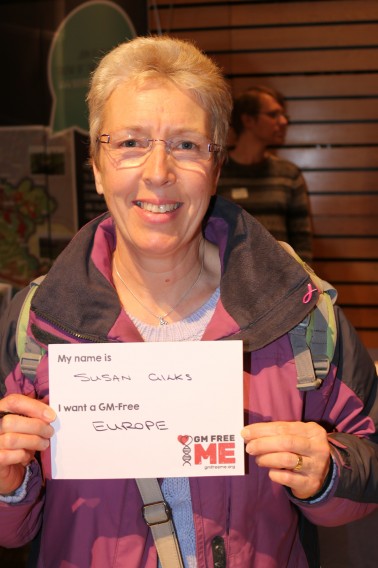 My name is
SUSAN GILKS
I want a GM-Free
EUROPE
GM FREE
ME
gmfreeme.org